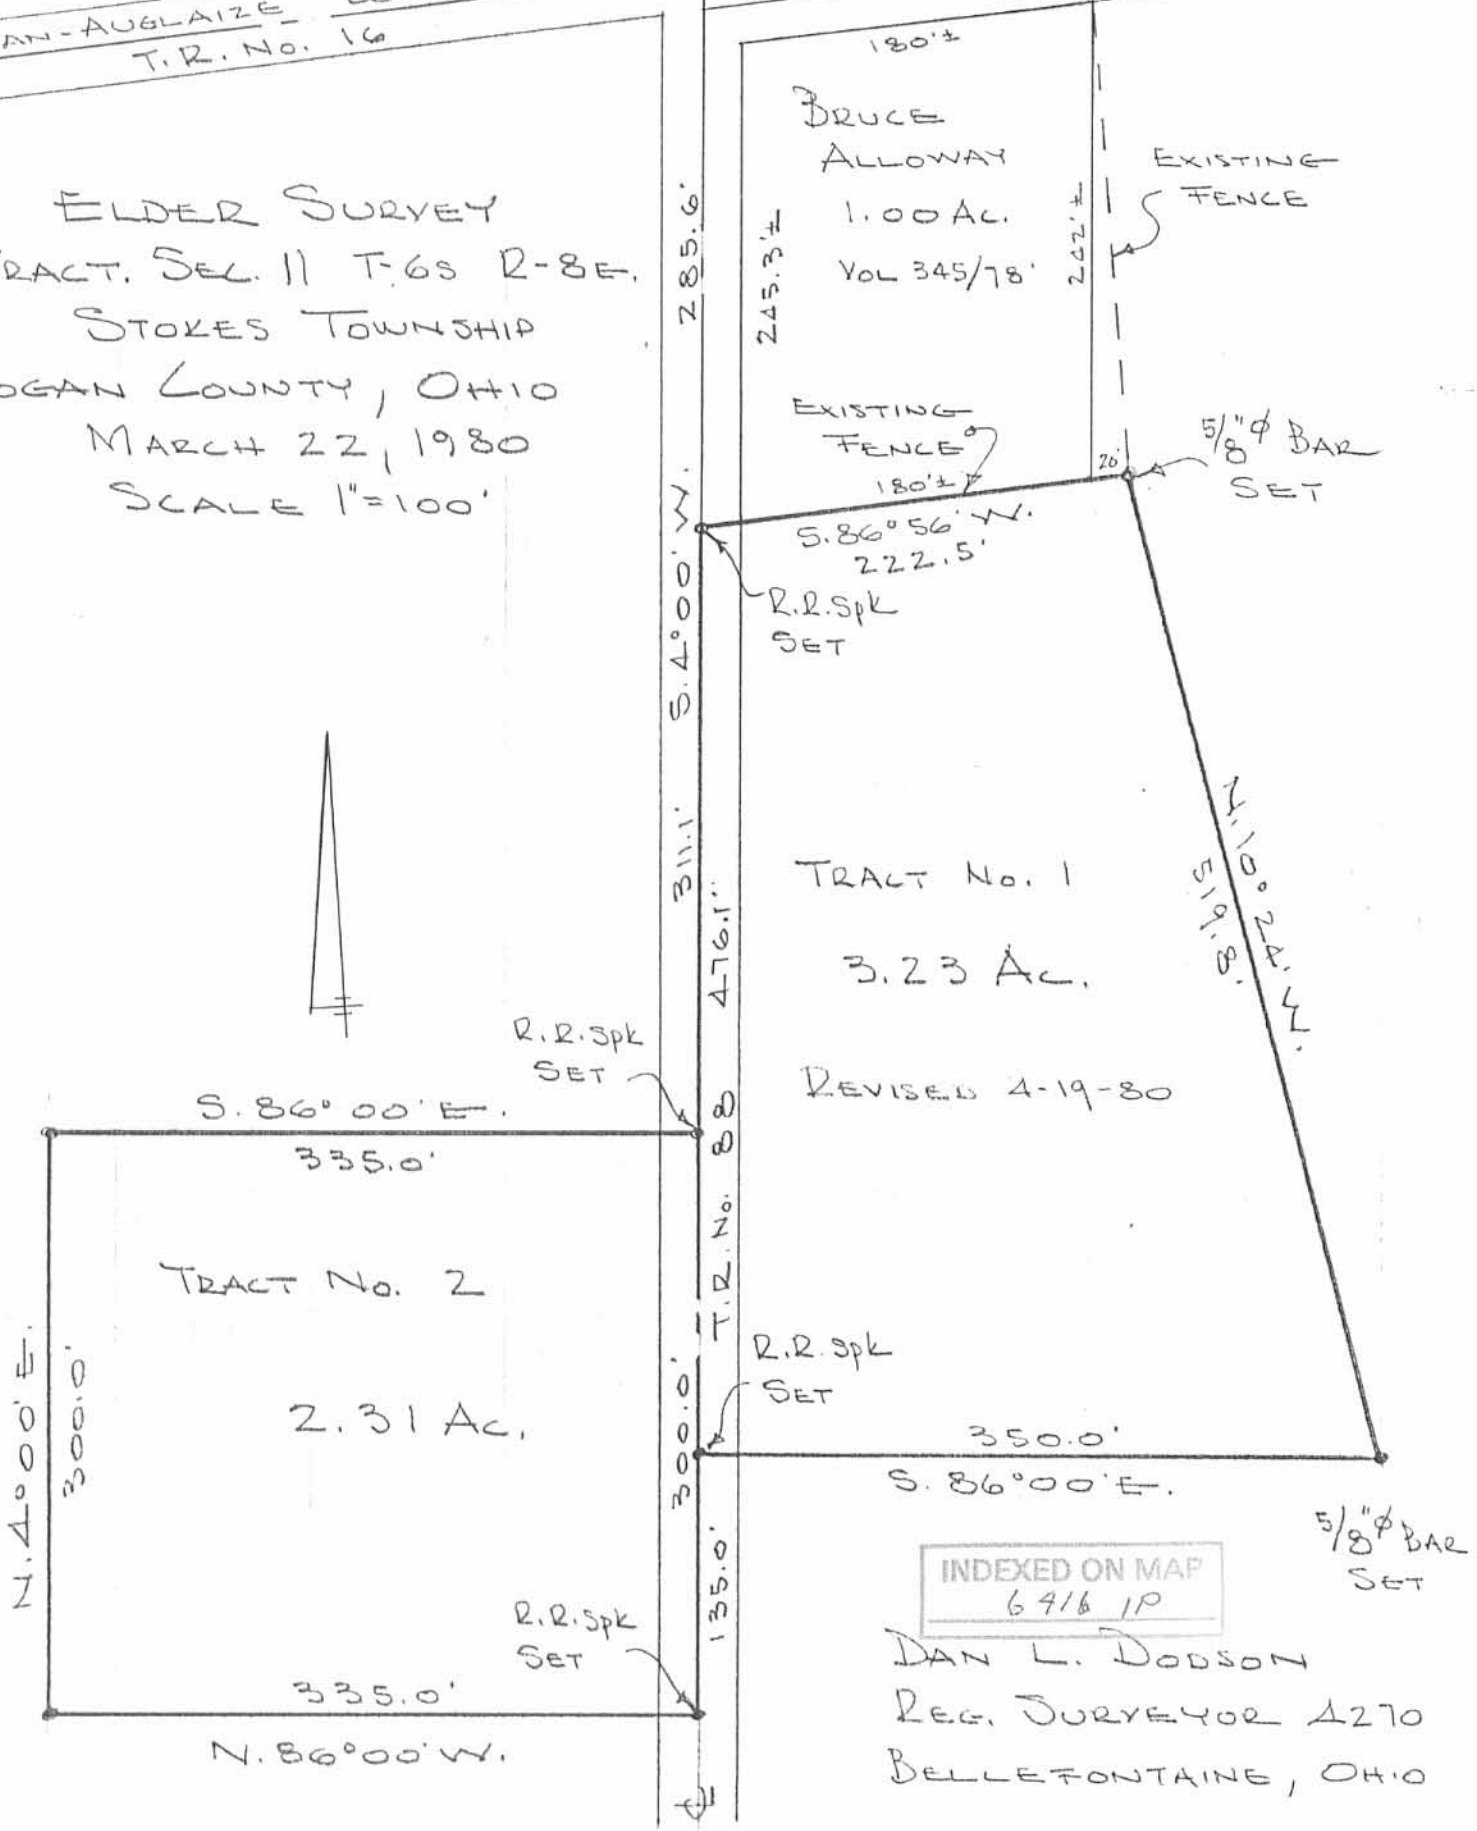 AN-AUGLAIZE
T.R. No. 16
ELDER SURVEY
RACT. SEC. 11 T-6S R-8E.
STOKES TOWNSHIP
OGAN COUNTY, OHIO
MARCH 22, 1980
SCALE 1"=100'
180'±
BRUCE
ALLOWAY
1.00 AC.
VOL 345/78
245.3'±
242'±
EXISTING
FENCE
EXISTING
FENCE
180'±
20'
5/8"ϕ BAR
SET
S.86°56'W.
222.5'
R.R.Spk
SET
285.6'
S.4°00'W.
311.1'
476.1'
T.R. No. 88
300.0'
135.0'
TRACT No. 1
3.23 Ac.
REVISED 4-19-80
N.10°24'W.
519.8'
R.R.Spk
SET
S.86°00'E.
335.0'
TRACT No. 2
2.31 Ac.
N.4°00'E.
300.0'
R.R.Spk
SET
350.0'
S.86°00'E.
5/8"ϕ BAR
SET
R.R.Spk
SET
335.0'
N.86°00'W.
INDEXED ON MAP
6416 1P
DAN L. DODSON
REG. SURVEYOR 4270
BELLEFONTAINE, OHIO